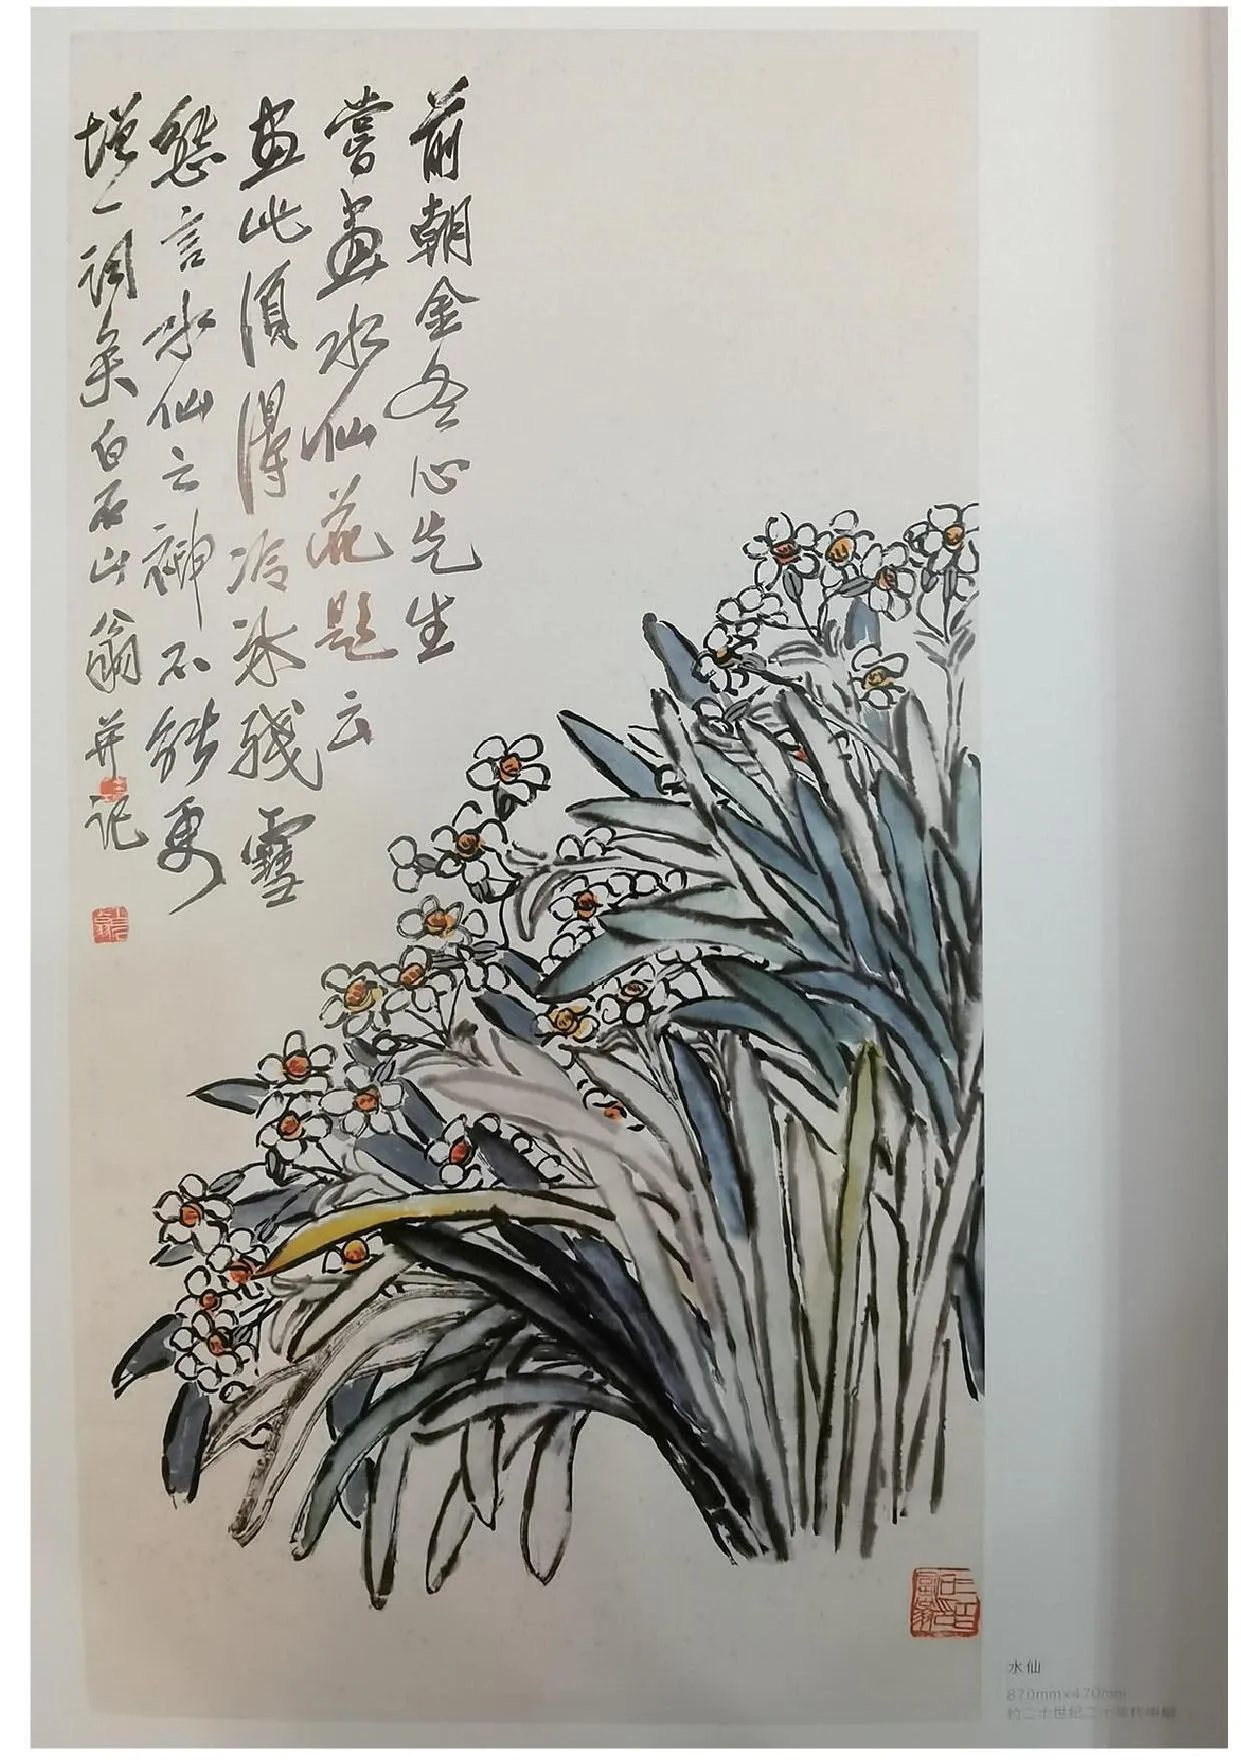 前朝金冬心先生
嘗畫水仙花題云
畫此須得冷冰殘雪
態言水仙之神不能更
增一詞矣白石山翁並記
水仙
870mm×470mm
約二十世紀二十年代